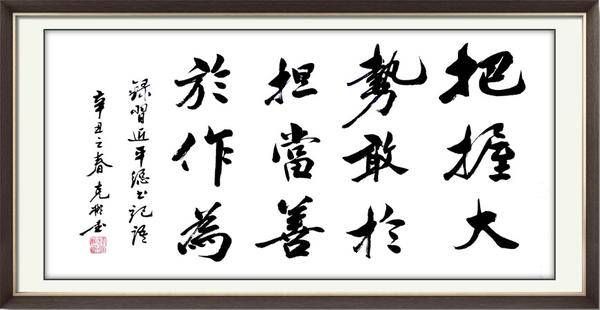 把握大
勢敢於
担當善
於作為
錄習近平總书記語
辛丑之春克書